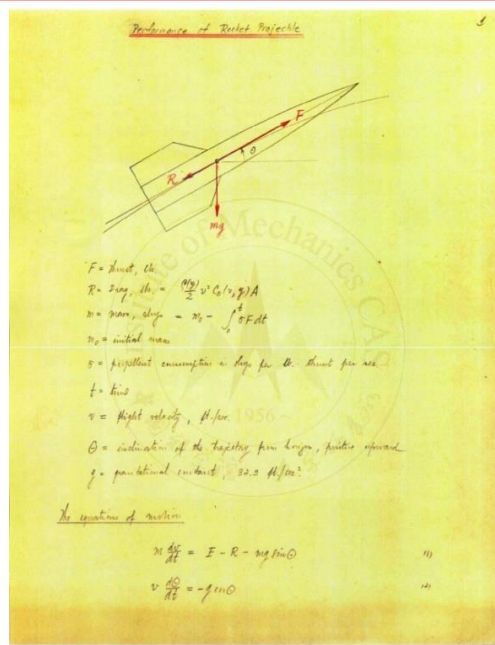 1
Performance of Rocket Projectile
F
θ
R
mg
F = thrust, lb.
R = Drag, lb. = ρ(y)/2 v² C_D(v,y) A
m = mass, slugs = m₀ - ∫₀ᵗ σF dt
m₀ = initial mass
σ = propellent consumption in slugs per lb. thrust per sec.
t = time
v = flight velocity, ft./sec.
θ = inclination of the trajectory from horizon, positive upward
g = gravitational constant, 32.2 ft./sec²
The equations of motion
m dv/dt = F - R - mg sinθ (1)
v dθ/dt = -g cosθ (2)
Institute of Mechanics CAS
1956